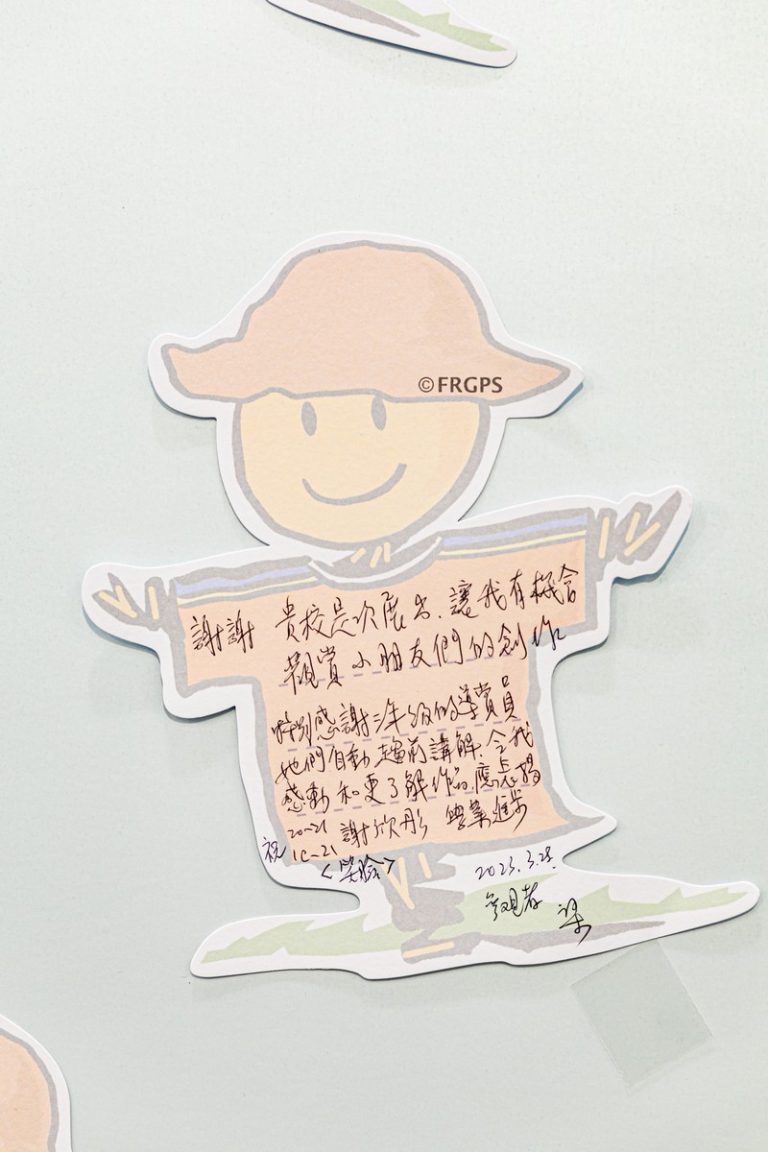 ©FRGPS
謝謝 貴校是次展出,讓我有機會
觀賞小朋友們的創作
特別感謝三年級的導賞員
他們自動趨前講解,令我
感動和更了解作品,應志
20-21 謝欣彤 學業進步
祝 1C-21
2023.3.28.
參觀者 梁